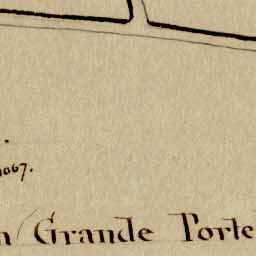 1067.
n Grande Porte